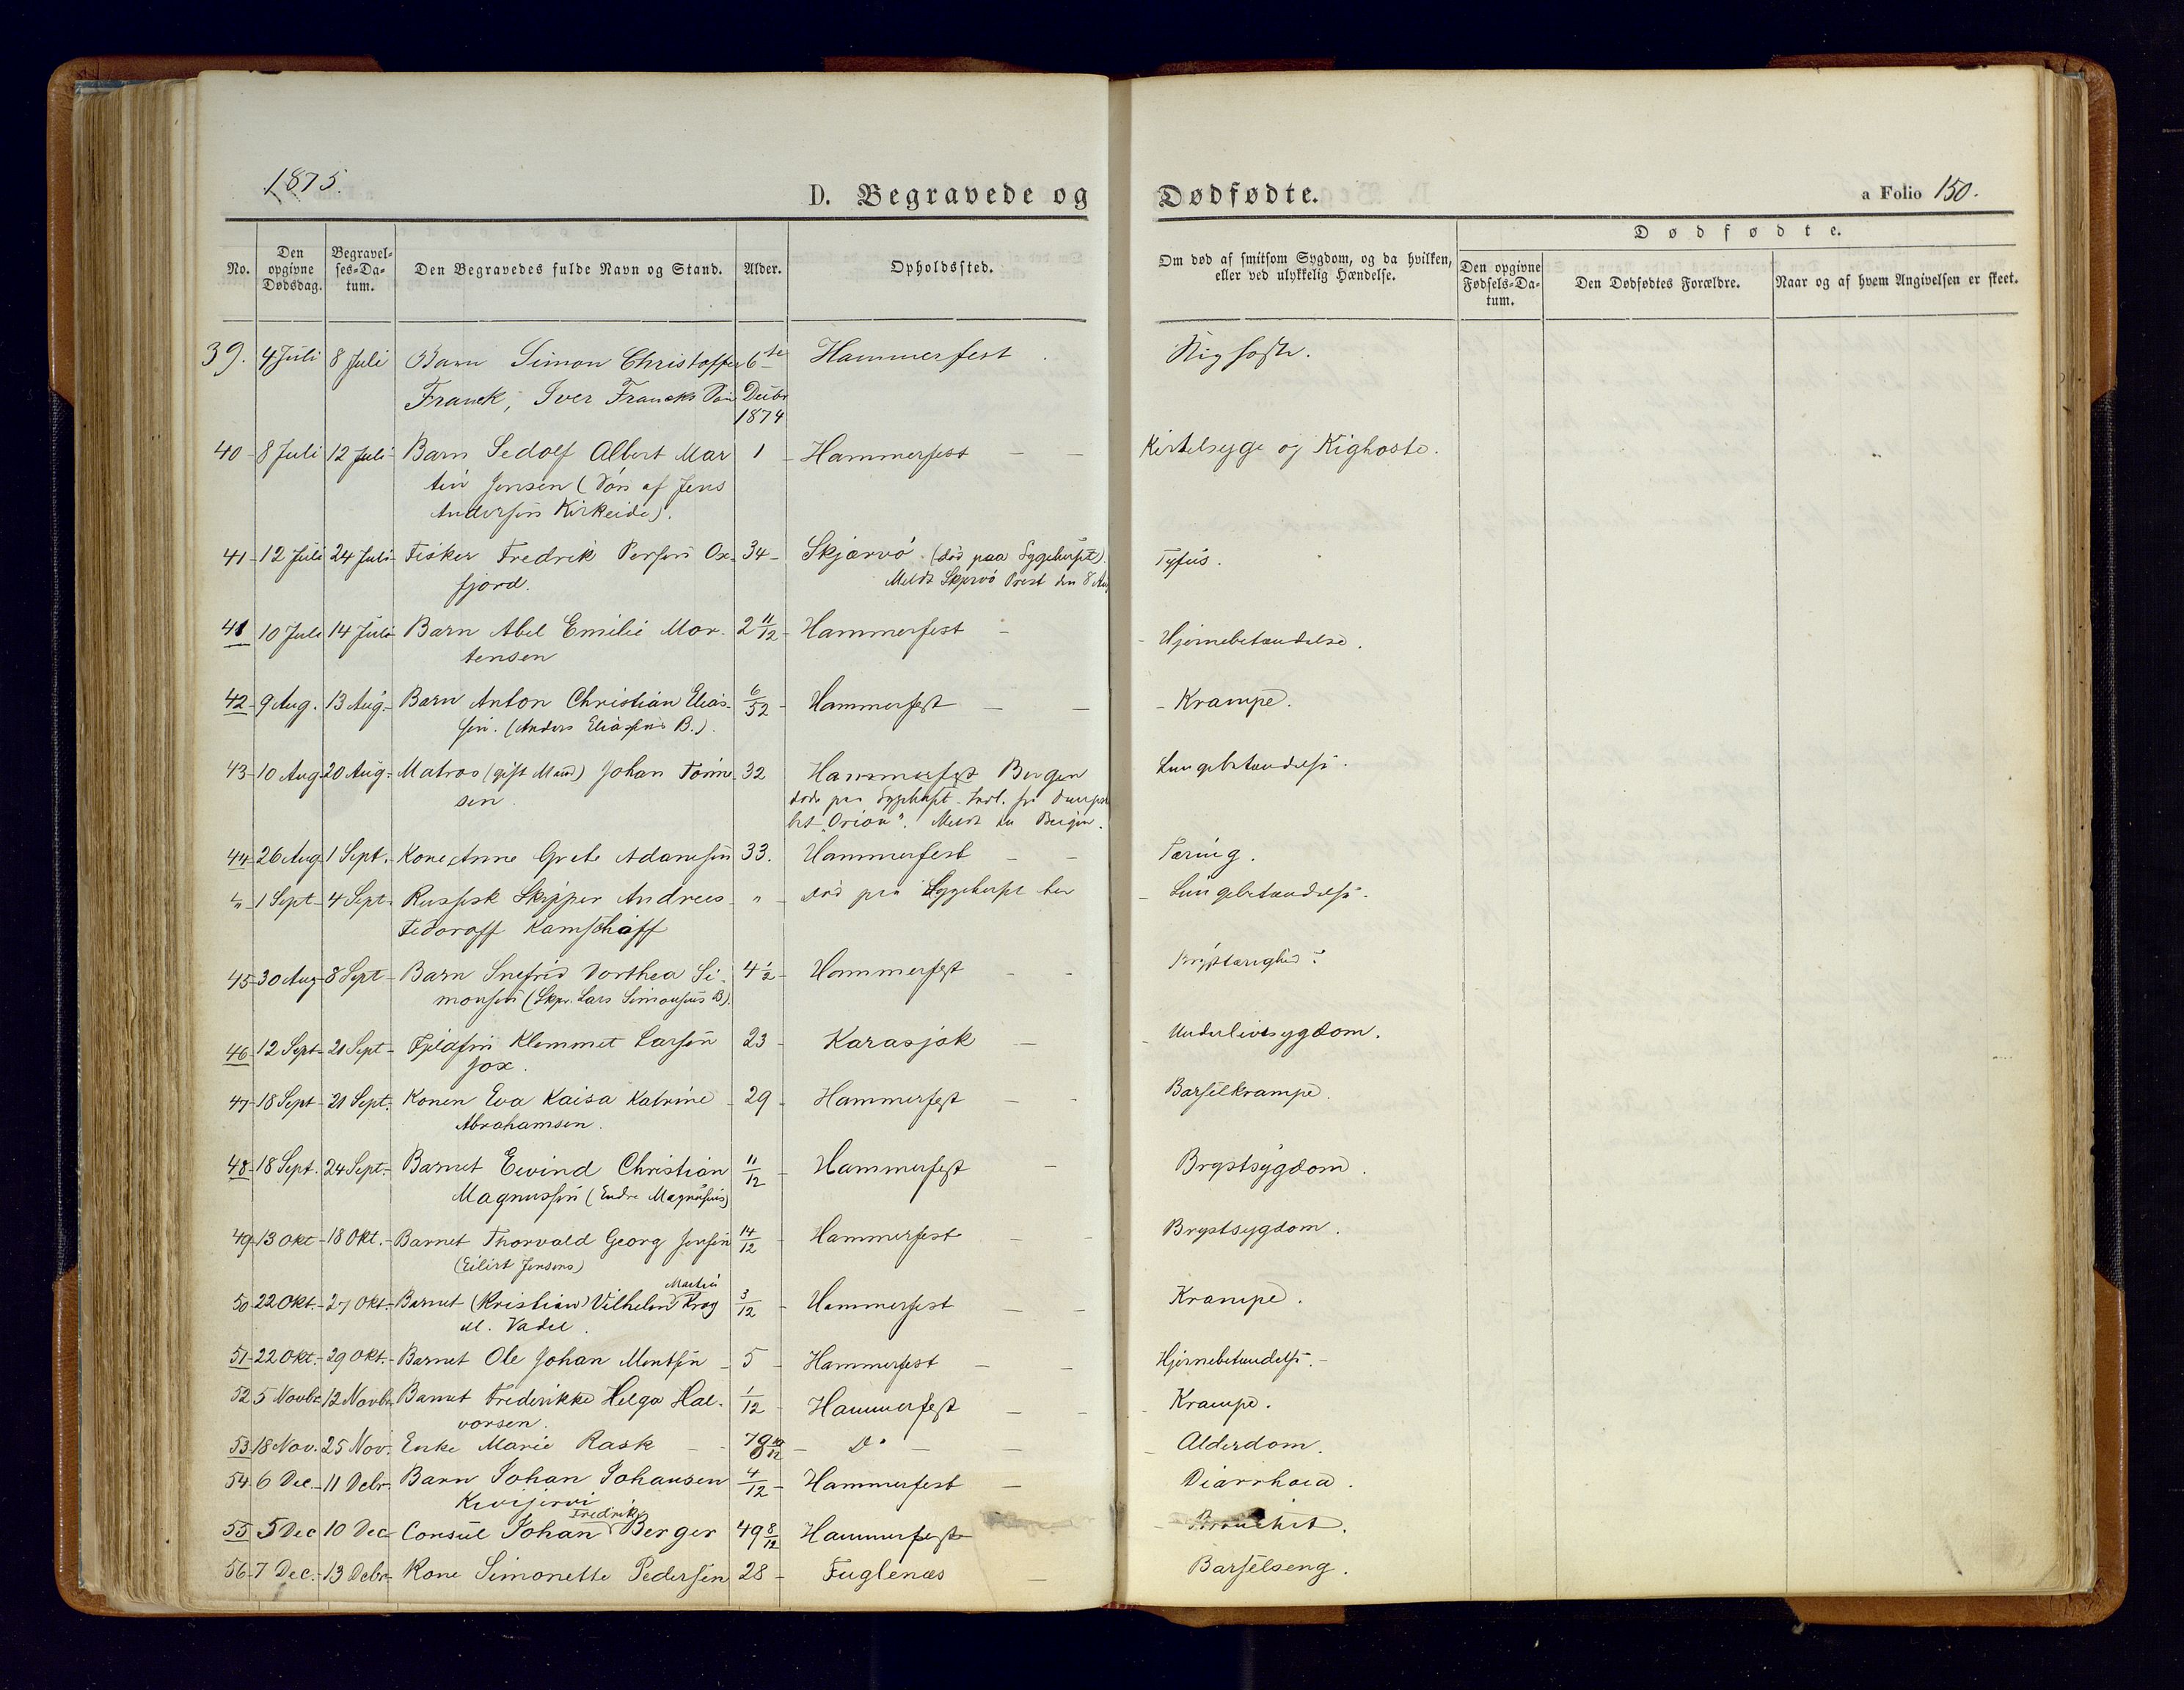 1875.
D. Begravede og Dødfødte.
a Folio 150.
No.
Den opgivne Dødsdag.
Begravelses-Datum.
Den Begravedes fulde Navn og Stand.
Alder.
Opholdssted.
Om død af smitsom Sygdom, og da hvilken, eller ved ulykkelig Hændelse.
Dødfødte.
Den opgivne Fødsels-Datum.
Den Dødfødtes Forældre.
Naar og af hvem Angivelsen er skeet.
39. 4 Juli 8 Juli Barn Simon Christoffer 6te Hammerfest Kighoste.
Franck, Iver Francks Søn Decbr
1874
40 - 8 Juli 12 Juli Barn Sedolf Albert Mar 1 - Hammerfest - - Kirtelsyge og Kighoste.
tin Jensen (Søn af Jens
Andersen Kirkeide).
41 - 12 Juli 24 Juli - Fisker Fredrik Persen Ox- 34 - Skjærvö (död paa Sygehuset) Tyfus.
fjord. Meldt Skjervö Prest den 8 Aug
41 10 Juli 14 Juli - Barn Abel Emilie Mor- 2 11/12 - Hammerfest - - Hjernebetændelse.
tensen
42 - 9 Aug. 13 Aug. - Barn Anton Christian Elias- 6/52 - Hammerfest - - - Krampe.
sen. (Anders Eliassens B.).
43 - 10 Aug 20 Aug. - Matros (gift Mand) Johan Tönne- 32 Hammerfest Bergen Lungebetændelse.
sen døde paa Sygehuset
"Orion". Meldt Bergen.
44 - 26 Aug 1 Sept. - Kone Anne Grete Adamsen 33. Hammerfest - - Tæring.
1 Sept - 4 Sept - Russisk Skipper Andrees - " - död paa Sygehuset her - Lungebetændelse.
Fedoroff Kamschaff
45 - 30 Aug - 8 Sept - Barn Snefrid Dorthea Si- 4 1/2 - Hammerfest - -
monsen (Skpr. Lars Simonsens B).
46 - 12 Sept - 21 Sept - Fjeldfin Klemmet Larsen 23 - Karasjok - - Underlivssygdom.
Jox.
47 - 18 Sept - 21 Sept. Konen Eva Kaisa Katrine - 29 - Hammerfest - - Barselkrampe.
Abrahamsen.
48 - 18 Sept. 24 Sept. - Barnet Eivind Christian 11/12 - Hammerfest - Brystsygdom.
Magnussen (Endre Magnussens)
49 - 13 Okt - 18 Okt. - Barnet Thorvald Georg Jensen 14/12 - Hammerfest - - Brystsygdom.
(Eilert Jensens)
Martin
50 - 22 Okt. - 27 Okt. - Barnet (Kristian) Vilhelm Krog 3/12 - Hammerfest - - Krampe.
Vadel.
51 - 22 Okt. - 29 Okt. - Barnet Ole Johan Mentsen - 5 - Hammerfest - - Hjernebetændelse. -
52 5 Novbr 12 Novbr Barnet Frederikke Helga Hal- 1/12 - Hammerfest - - - Krampe.
vorsen.
53 18 Nov. 25 Nov. Enke Marie Rask - - 79 10/12 - Do - - - Alderdom.
54 - 6 Dec. - 11 Debr. Barn Johan Johansen 4/12 - Hammerfest - Diarrhoea.
Kivijervi
Fredrik
55 5 Dec 10 Dec Consul Johan Berger 49 8/12 Hammerfest - Bronchit.
56 - 7 Dec. - 13 Debr - Kone Simonette Pedersen 28 - Fuglenæs - Barselseng.